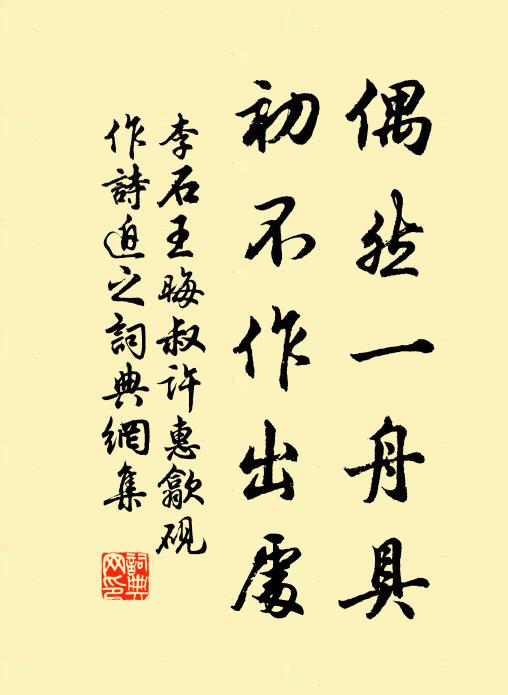 偶然一舟具
初不作出處
李石王晦叔許惠歙硯
作詩迫之詞典網集
詞典
網印